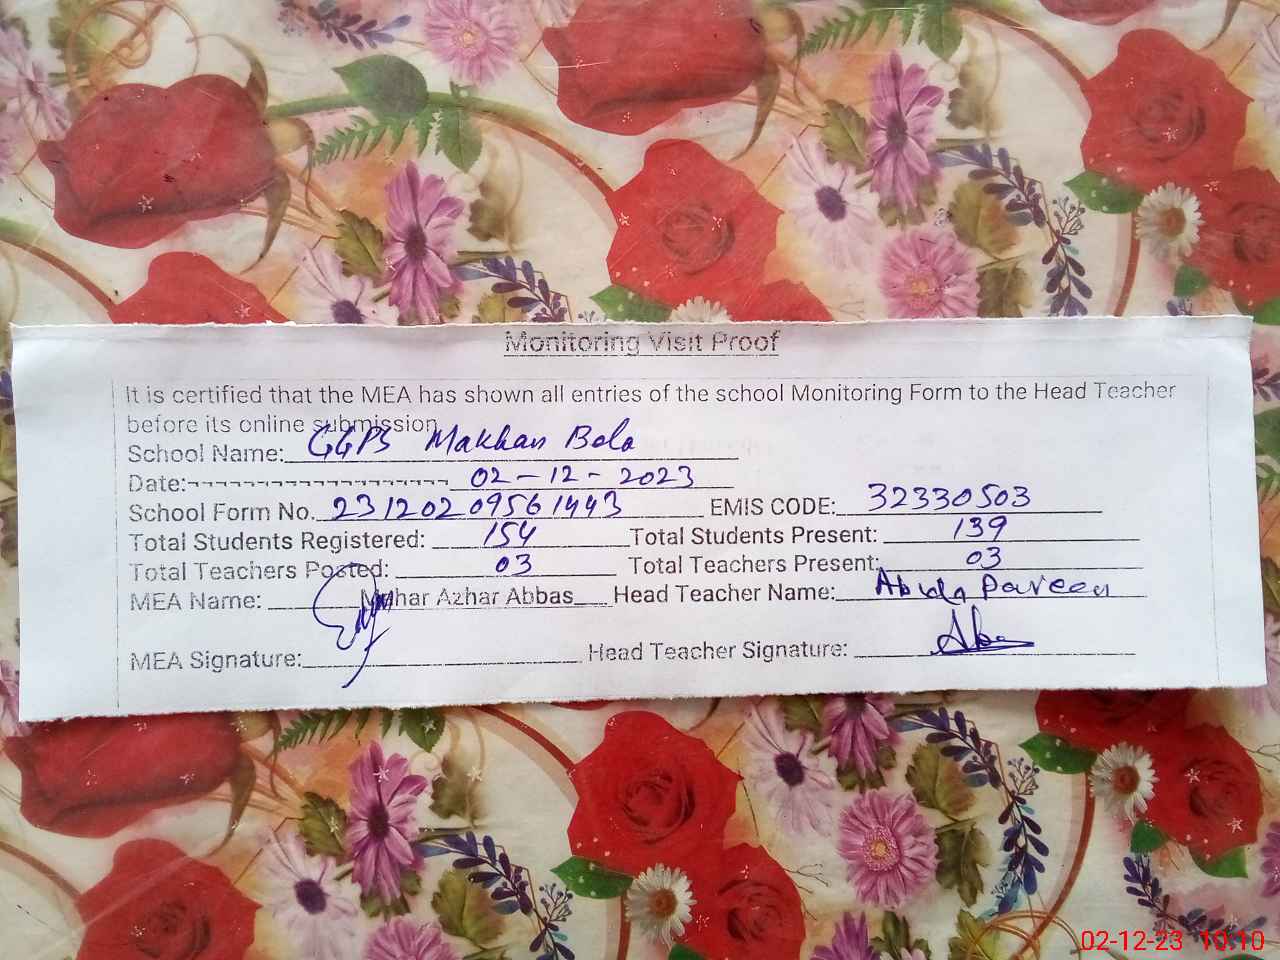 Monitoring Visit Proof
It is certified that the MEA has shown all entries of the school Monitoring Form to the Head Teacher
before its online submission
School Name: GGPS Makhan Bela
Date:¬¬¬¬¬¬¬¬¬¬¬¬¬¬¬¬¬¬¬¬ 02-12-2023
School Form No. 23120209561443 EMIS CODE: 32330503
Total Students Registered: 154 Total Students Present: 139
Total Teachers Posted: 03 Total Teachers Present: 03
MEA Name: Mazhar Azhar Abbas Head Teacher Name: Parveen
MEA Signature: Head Teacher Signature:
02-12-23 10:10